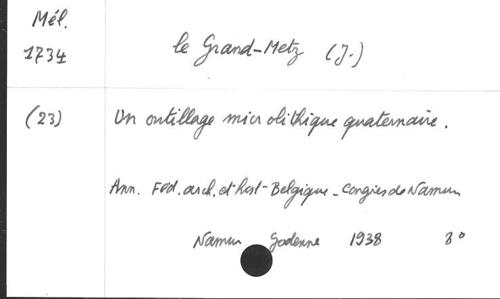 Mél.
1734
le Grand-Metz (J.)
(23)
Un outillage microlithique quaternaire.
Ann. Féd. arch. et hist. Belgique - Congrès de Namur
Namur Godenne 1938 8°